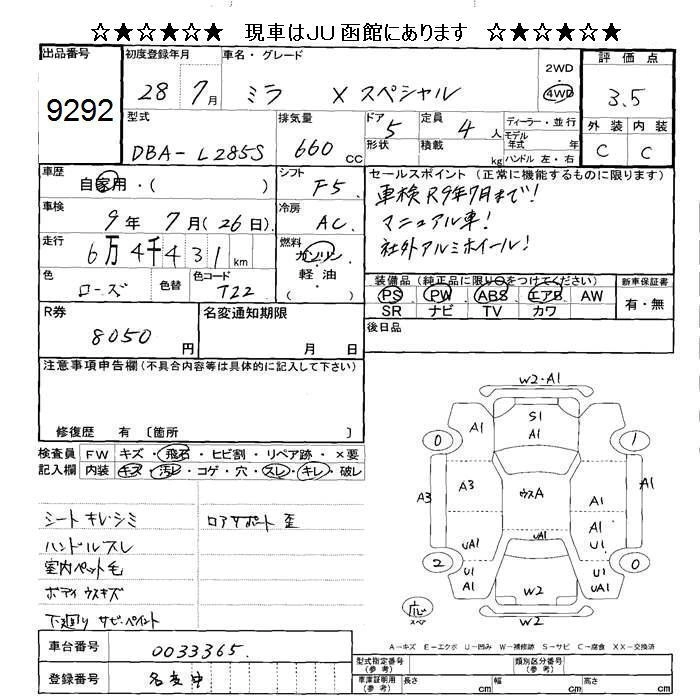 ☆★☆★☆★ 現車はJU函館にあります ☆★☆★☆★
出品番号
9292
初度登録年月
28 7月
車名・グレード
ミラ X スペシャル
2WD
4WD
評価点
3.5
外装 内装
C C
型式
DBA-L285S
排気量
660 CC
ドア 5
形状
定員 4 人
積載 kg
ディーラー・並行
モデル年式 年
ハンドル 左・右
車歴
自家用・( )
シフト
F5
セールスポイント (正常に機能するものに限ります)
車検R9年7月まで!
マニュアル車!
社外アルミホイール!
車検
9年 7月(26日)
冷房
AC
走行
6万4千431km
燃料
ガソリン
軽油
( )
色
ローズ
色替
色コード
T22
装備品 (純正品に限り○をつけてください)
PS PW ABS エアB AW
SR ナビ TV カワ
新車保証書
有・無
R券
8050 円
名変通知期限
月 日
後日品
注意事項申告欄(不具合内容等は具体的に記入して下さい)
修復歴 有 〔箇所 〕
検査員記入欄
FW キズ・飛石・ヒビ割・リペア跡・×要
内装 キズ・汚レ・コゲ・穴・スレ・キレ・破レ
シートキレ・シミ
ロアサポート 歪
ハンドルスレ
室内ペット毛
ボディウスキズ
下廻り サビ・ペイント
W2・A1
A1 S1 A1 A1
0 1
A3 A3 ウスA A1 A1
A1
UA1 UA1 U1
2 0
A1 U1 W2 U1 UA1
W2
応
スペア
車台番号
0033365
登録番号
名変中
A-キズ E-エクボ U-凹み W-補修跡 S-サビ C-腐食 XX-交換済
型式指定番号(参考)
類別区分番号(参考)
車庫証明用(参考)
長さ cm 幅 cm 高さ cm